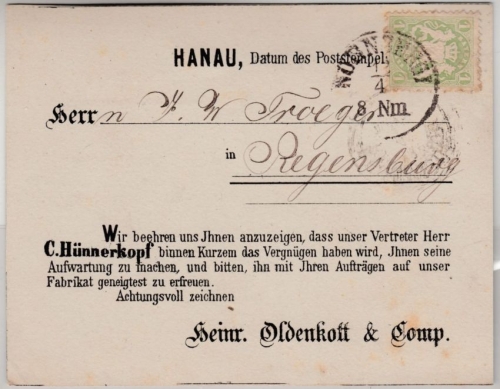 HANAU, Datum des Poststempel
NÜRNBERG I
4
8 Nm
Herrn J. W. Troeger
in
Regensburg
Wir beehren uns Jhnen anzuzeigen, dass unser Vertreter Herr
C. Hünnerkopf binnen Kurzem das Vergnügen haben wird, Jhnen seine
Aufwartung zu machen, und bitten, ihn mit Jhren Aufträgen auf unser
Fabrikat geneigtest zu erfreuen.
Achtungsvoll zeichnen
Heinr. Oldenkott & Comp.